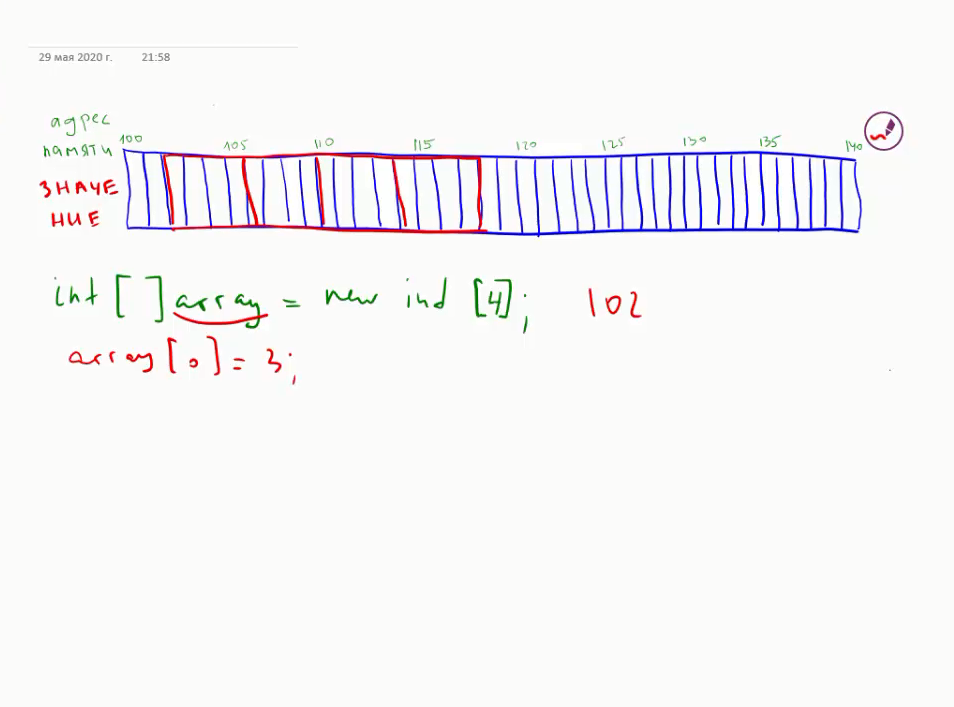 29 мая 2020 г. 21:58
адрес
памяти 100 105 110 115 120 125 130 135 140
ЗНАЧЕ
НИЕ
int [ ] array = new ind [4]; 102
array [0] = 3;